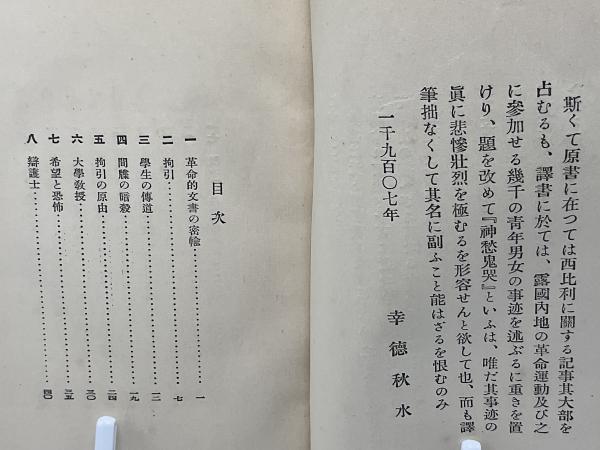 斯くて原書に在つては西比利に關する記事其大部を
占むるも、譯書に於ては、露國內地の革命運動及び之
に參加せる幾千の青年男女の事迹を述ぶるに重きを置
けり、題を改めて『神愁鬼哭』といふは、唯だ其事迹の
眞に悲慘壯烈を極むるを形容せんと欲して也、而も譯
筆拙なくして其名に副ふこと能はざるを恨むのみ
一千九百〇七年
幸德秋水
目次
一 革命的文書の密輸 一
二 拘引 七
三 學生の傳道 三
四 間諜の暗殺 一九
五 拘引の原由 二四
六 大學敎授 三〇
七 希望と恐怖 三五
八 辯護士 四〇